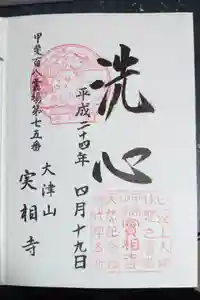 洗心
平成二十四年 四月十九日
甲斐百八霊場第七五番
大津山
実相寺
實相寺